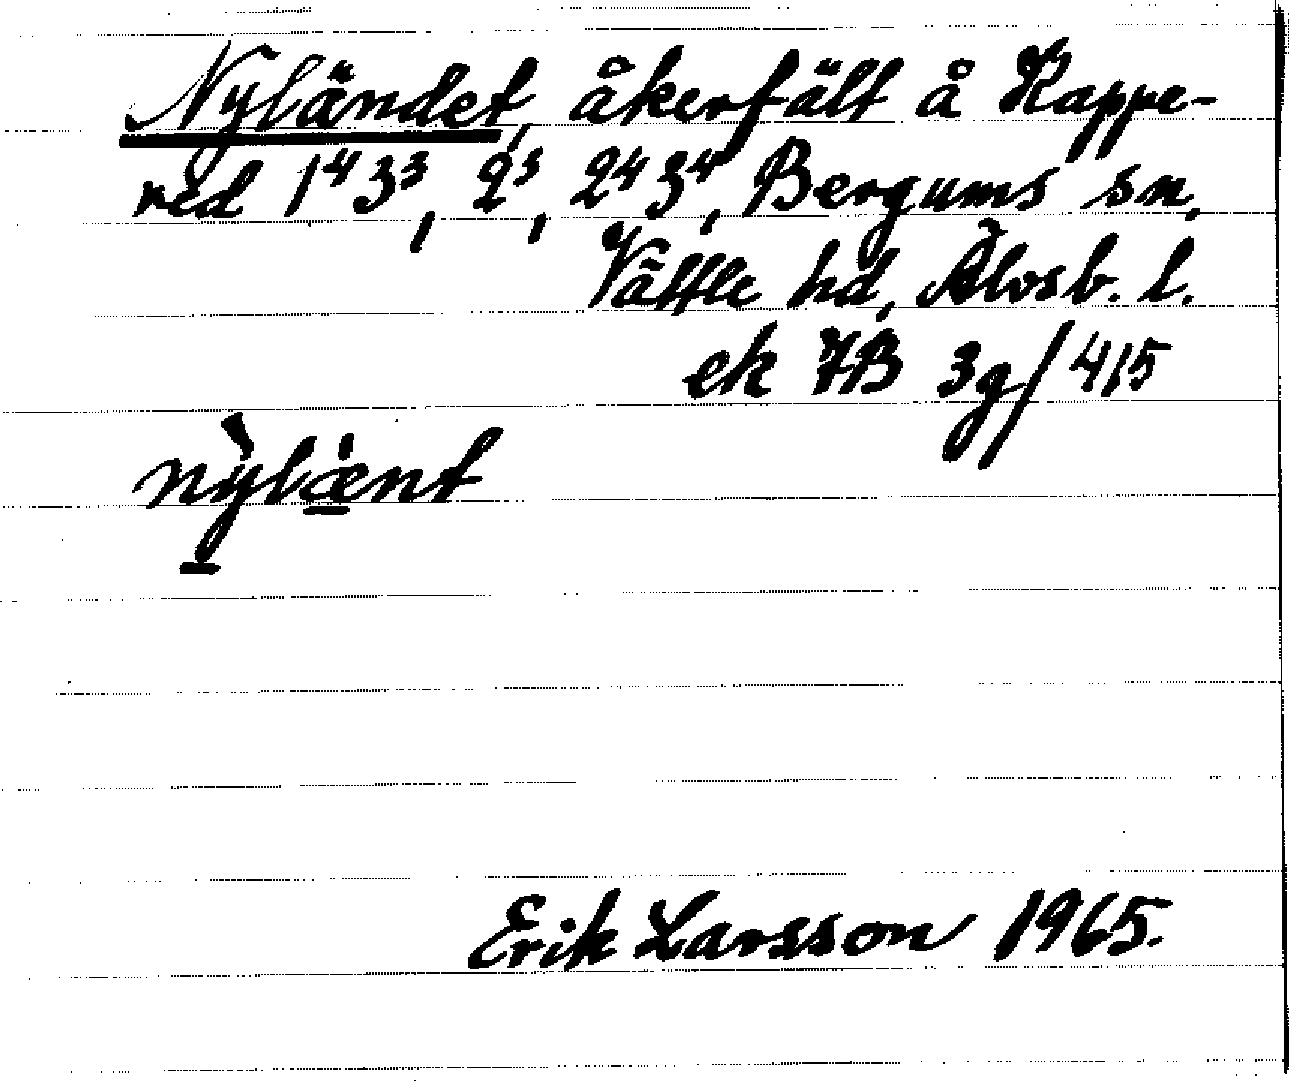 Nyländet, åkerfält å Kappe-
red 1⁴3³, 2³, 2⁴3⁴, Bergums sn,
Vättle hd, Älvsb. l.
ek 7B 3g/415
nỳlænt
Erik Larsson 1965.